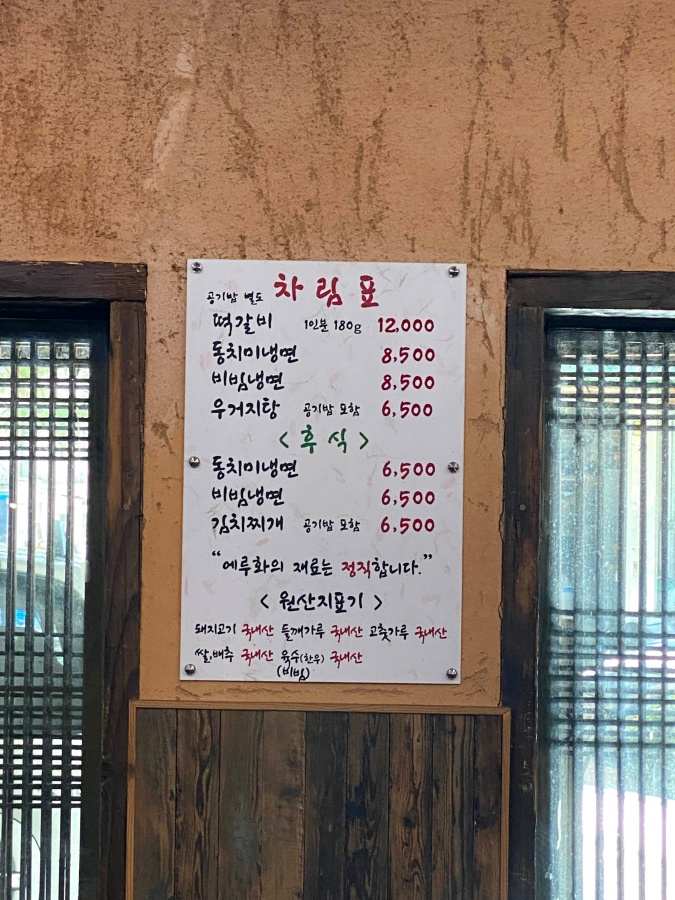 차림표
공기밥 별도
떡갈비 1인분 180g 12,000
동치미냉면 8,500
비빔냉면 8,500
우거지탕 공기밥 포함 6,500
< 후식 >
동치미냉면 6,500
비빔냉면 6,500
김치찌개 공기밥 포함 6,500
“예루화의 재료는 정직합니다.”
< 원산지표기 >
돼지고기 국내산 들깨가루 국내산 고춧가루 국내산
쌀,배추 국내산 육수(한우) 국내산
(비빔)